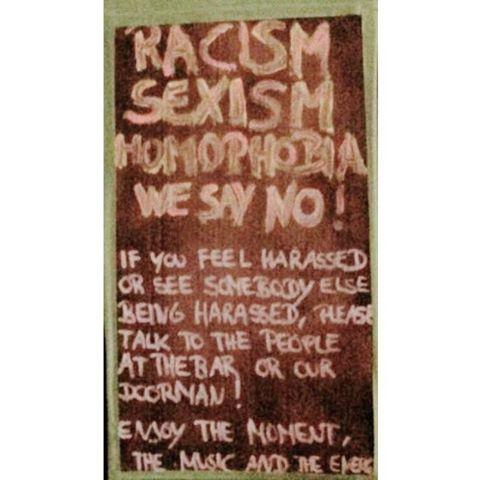 RACISM
SEXISM
HOMOPHOBIA
WE SAY NO!
IF YOU FEEL HARASSED
OR SEE SOMEBODY ELSE
BEING HARASSED, PLEASE
TALK TO THE PEOPLE
AT THE BAR OR OUR
DOORMAN!
ENJOY THE MOMENT,
THE MUSIC AND THE